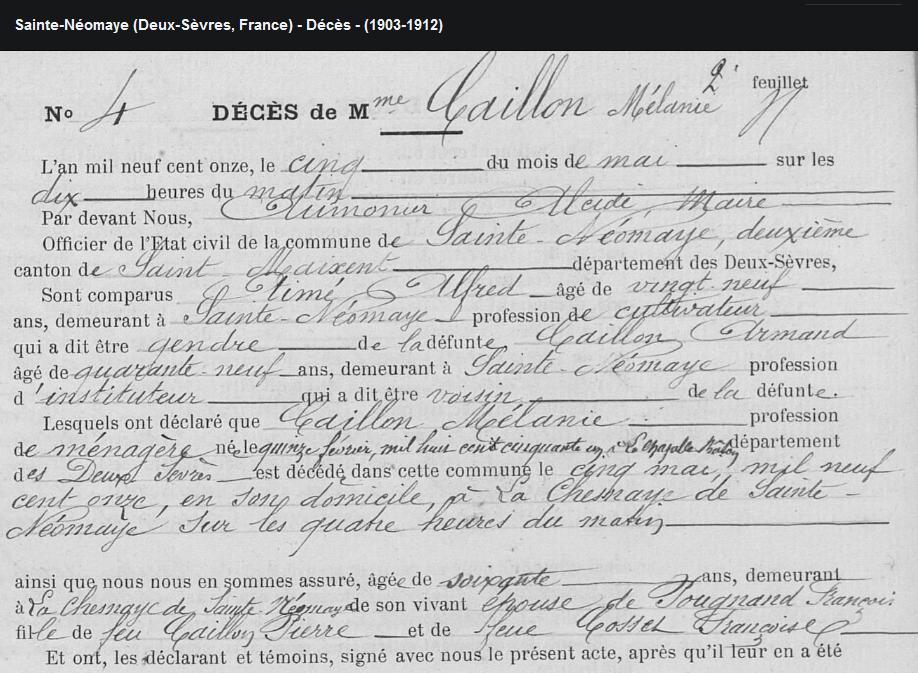 Sainte-Néomaye (Deux-Sèvres, France) - Décès - (1903-1912)
2e feuillet
No 4 DÉCÈS de Mme Caillon Mélanie
L'an mil neuf cent onze, le cinq du mois de mai sur les
dix heures du matin
Par devant Nous, Aumonier Alcide, Maire
Officier de l'Etat civil de la commune de Sainte-Néomaye, deuxième
canton de Saint-Maixent département des Deux-Sèvres,
Sont comparus Alfred âgé de vingt neuf
ans, demeurant à Sainte-Néomaye profession de cultivateur
qui a dit être gendre de la défunte, Caillon, Armand
âgé de quarante-neuf ans, demeurant à Sainte-Néomaye profession
d'instituteur qui a dit être voisin de la défunte.
Lesquels ont déclaré que Caillon, Mélanie profession
de ménagère né le quinze février, mil huit cent cinquante un, à La Chapelle Bâton département
des Deux Sèvres est décédé dans cette commune le cinq mai, mil neuf
cent onze, en son domicile, à La Chesnaye de Sainte-
Néomaye sur les quatre heures du matin,
ainsi que nous nous en sommes assuré, âgée de soixante ans, demeurant
à La Chesnaye de Sainte-Néomaye de son vivant épouse de Pougnand François
fille de feu Caillon, Pierre et de feue Françoise
Et ont, les déclarant et témoins, signé avec nous le présent acte, après qu'il leur en a été